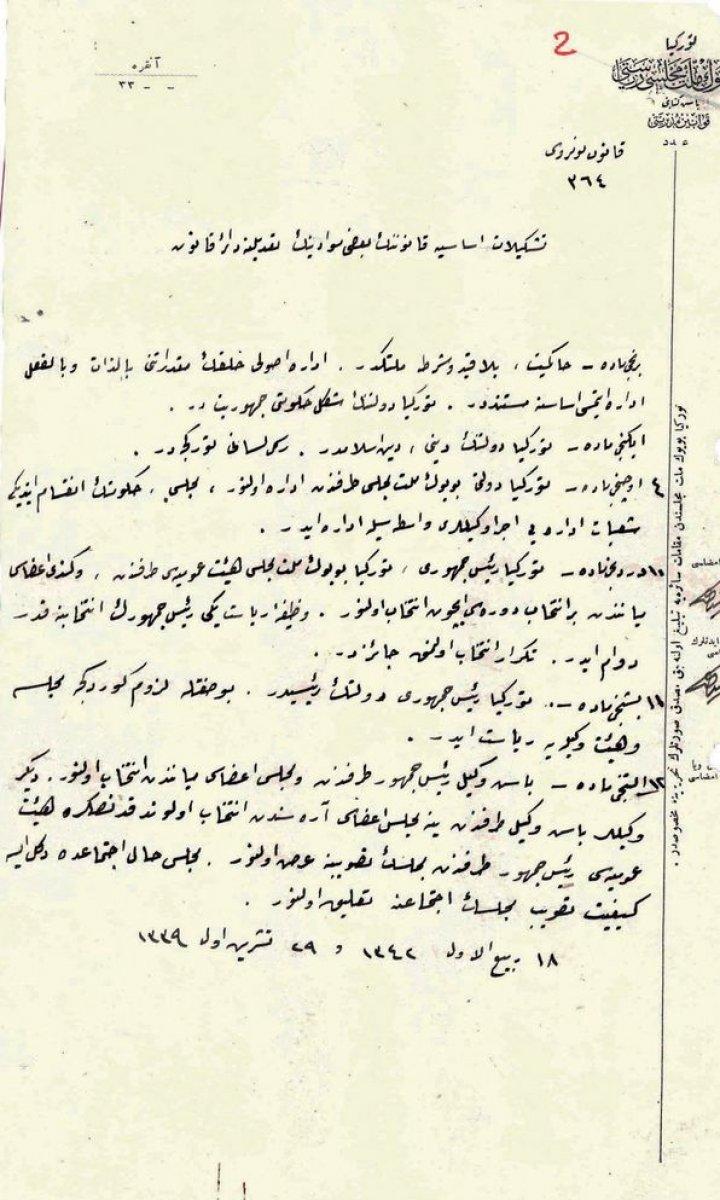 2
توركيا
بيوك ملت مجلسى رياستى
باش كتابتى
قوانين مديريتى
عدد
آنقره
٣٣ - -
قانون نومروسى
٣٦٤
تشكيلات اساسيه قانوننك بعضى موادينك تعديلنه دائر قانون
برنجى ماده - حاكميت ، بلا قيد و شرط ملتكدر . اداره اصولى خلقك مقدراتنى بالذات و بالفعل
اداره ايتمسى اساسنه مستنددر . توركيا دولتنك شكل حكومتى جمهوريت در .
ايكنجى ماده - توركيا دولتنك دينى ، دين اسلامدر . رسمى لسانى توركجه در .
٤ اوچنجى ماده - توركيا دولتى بويوك ملت مجلسى طرفندن اداره اولنور . مجلس ، حكومتك انقسام ايتديكى
شعبات اداره يى اجرا وكيللرى واسطه سيله اداره ايدر .
١٠ دردنجى ماده - توركيا رئيس جمهورى ، توركيا بويوك ملت مجلسى هيئت عموميه سى طرفندن ، و كندى اعضاسى
مياننندن بر انتخاب دوره سى ايچون انتخاب اولنور . وظيفه رياست يكى رئيس جمهورك انتخابنه قدر
دوام ايدر . تكرار انتخاب اولنمق جائزدر .
١١ بشنجى ماده - توركيا رئيس جمهورى دولتك رئيسيدر . بو صفتله لزوم كوردكجه مجلسه
و هيئت وكيليه رياست ايدر .
١٢ آلتنجى ماده - باش وكيل رئيس جمهور طرفندن و مجلس اعضاسى مياننندن انتخاب اولنور . ديكر
وكيللر باش وكيل طرفندن ينه مجلس اعضاسى آره سندن انتخاب اولوندقدنصكره هيئت
عموميه سى رئيس جمهور طرفندن مجلسك تصويبنه عرض اولنور . مجلس حال اجتماعده دكل ايسه
كيفيت تصويب مجلسك اجتماعنه تعليق اولنور .
١٨ ربيع الاول ١٣٤٢ و ٢٩ تشرين اول ١٣٣٩
توركيا بويوك ملت مجلسندن مقامات سائره يه تبليغ اولنه جق مصدق صورتلرك تحريرينه مخصوصدر .
امضاسى
امضاسى